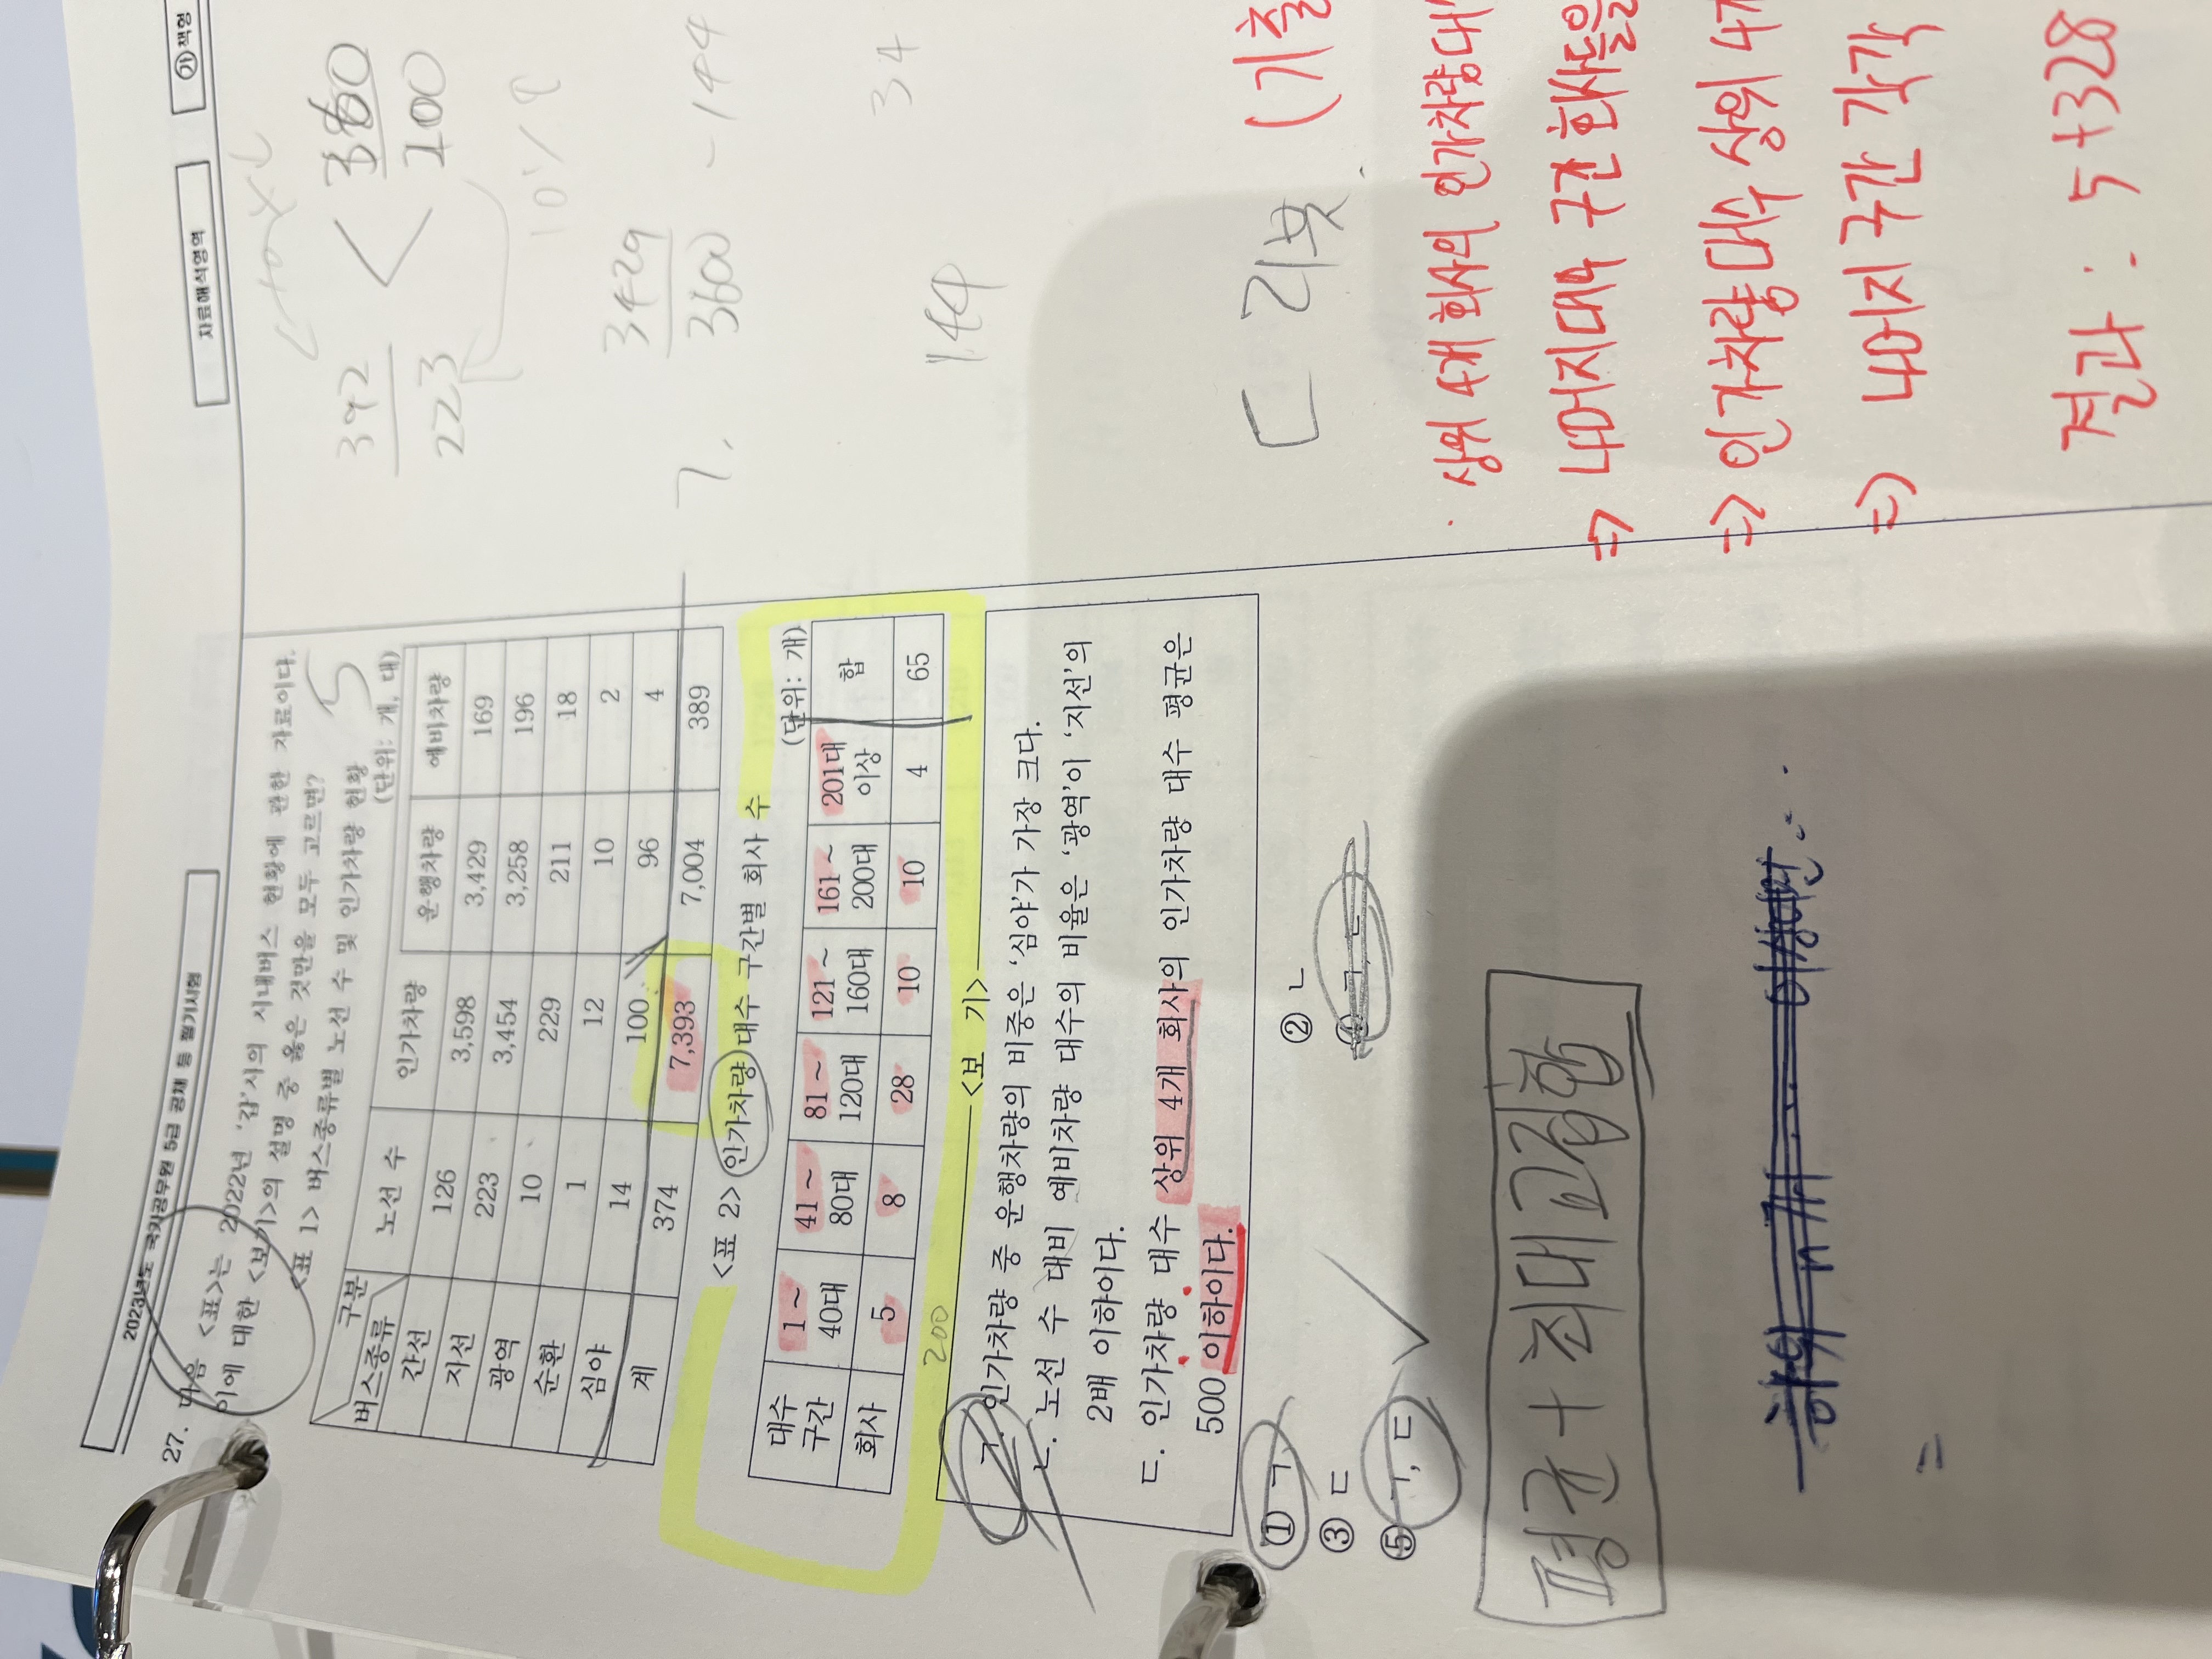 2023년도 국가공무원 5급 공채 등 필기시험
자료해석영역
㉮ 책형
27. 다음 <표>는 2022년 '갑'시의 시내버스 현황에 관한 자료이다.
이에 대한 <보기>의 설명 중 옳은 것만을 모두 고르면?
5
<표 1> 버스종류별 노선 수 및 인가차량 현황
(단위: 개, 대)
구분 버스종류 노선 수 인가차량 운행차량 예비차량
간선 126 3,598 3,429 169
지선 223 3,454 3,258 196
광역 10 229 211 18
순환 1 12 10 2
심야 14 100 96 4
계 374 7,393 7,004 389
<표 2> 인가차량 대수 구간별 회사 수
(단위: 개)
대수 구간 1~ 40대 41~ 80대 81~ 120대 121~ 160대 161~ 200대 201대 이상 합
회사 5 8 28 10 10 4 65
200
<보 기>
ㄱ. 인가차량 중 운행차량의 비중은 '심야'가 가장 크다.
ㄴ. 노선 수 대비 예비차량 대수의 비율은 '광역'이 '지선'의
2배 이하이다.
ㄷ. 인가차량 대수 상위 4개 회사의 인가차량 대수 평균은
500 이하이다.
① ㄱ
② ㄴ
③ ㄷ
④ ㄱ, ㄴ
⑤ ㄱ, ㄷ
평균 + 최대 교집합
392
223
<
100
10%
3429
3600
-144
34
144
ㄷ 리뷰
(기출
· 상위 4개 회사의 인가차량 대
=> 나머지 대수 구간 회사들을
=> 인가차량 대수 상위 4개
=> 나머지 구간 각각
결과 : 5+328